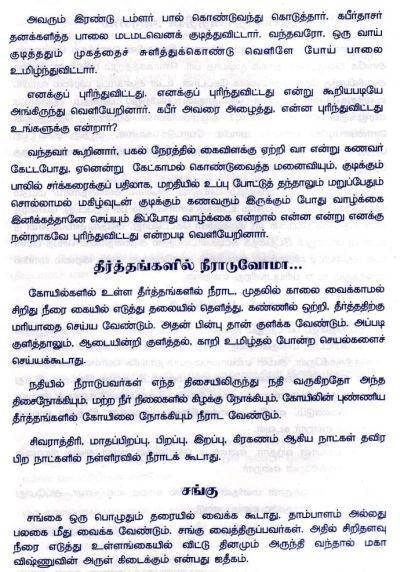 அவரும் இரண்டு டம்ளர் பால் கொண்டுவந்து கொடுத்தார். கபீர்தாசர்
தனக்களித்த பாலை மடமடவெனக் குடித்துவிட்டார். வந்தவரோ. ஒரு வாய்
குடித்ததும் முகத்தைச் சுளித்துக்கொண்டு வெளிளே போய் பாலை
உமிழ்ந்துவிட்டார்.
எனக்குப் புரிந்துவிட்டது. எனக்குப் புரிந்துவிட்டது என்று கூறியபடியே
அங்கிருந்து வெளியேறினார். கபீர் அவரை அழைத்து. என்ன புரிந்துவிட்டது
உங்களுக்கு என்றார்?
வந்தவர் கூறினார். பகல் நேரத்தில் கைவிளக்கு ஏற்றி வா என்று கணவர்
கேட்டபோது. ஏனென்று கேட்காமல் கொண்டுவைத்த மனைவியும், குடிக்கும்
பாலில் சர்க்கரைக்குப் பதிலாக, மறதியில் உப்பு போட்டுத் தந்தாலும் மறுப்பேதும்
சொல்லாமல் மகிழ்வுடன் குடிக்கும் கணவரும் இருக்கும் போது வாழ்க்கை
இனிக்கத்தானே செய்யும் இப்போது வாழ்க்கை என்றால் என்ன என்று எனக்கு
நன்றாகவே புரிந்துவிட்டது என்றபடி வெளியேறினார்.
தீர்த்தங்களில் நீராடுவோமா...
கோயில்களில் உள்ள தீர்த்தங்களில் நீராட, முதலில் காலை வைக்காமல்
சிறிது நீரை கையில் எடுத்து தலையில் தெளித்து, கண்ணில் ஒற்றி, தீர்த்ததிற்கு
மரியாதை செய்ய வேண்டும். அதன் பின்பு தான் குளிக்க வேண்டும். அப்படி
குளித்தாலும், ஆடையின்றி குளித்தல், காறி உமிழ்தல் போன்ற செயல்களைச்
செய்யக்கூடாது.
நதியில் நீராடுபவர்கள் எந்த திசையிலிருந்து நதி வருகிறதோ அந்த
திசைநோக்கியும், மற்ற நீர் நிலைகளில் கிழக்கு நோக்கியும். கோயிலின் புண்ணிய
தீர்த்தங்களில் கோயிலை நோக்கியும் நீராட வேண்டும்.
சிவராத்திரி, மாதப்பிறப்பு, பிறப்பு, இறப்பு, கிரகணம் ஆகிய நாட்கள் தவிர
பிற நாட்களில் நள்ளிரவில் நீராடக் கூடாது.
சங்கு
சங்கை ஒரு பொழுதும் தரையில் வைக்க கூடாது. தாம்பாளம் அல்லது
பலகை மீது வைக்க வேண்டும். சங்கு வைத்திருப்பவர்கள். அதில் சிறிதளவு
நீரை எடுத்து உள்ளங்கையில் விட்டு தினமும் அருந்தி வந்தால் மகா
விஷ்ணுவின் அருள் கிடைக்கும் என்பது ஐதீகம்.